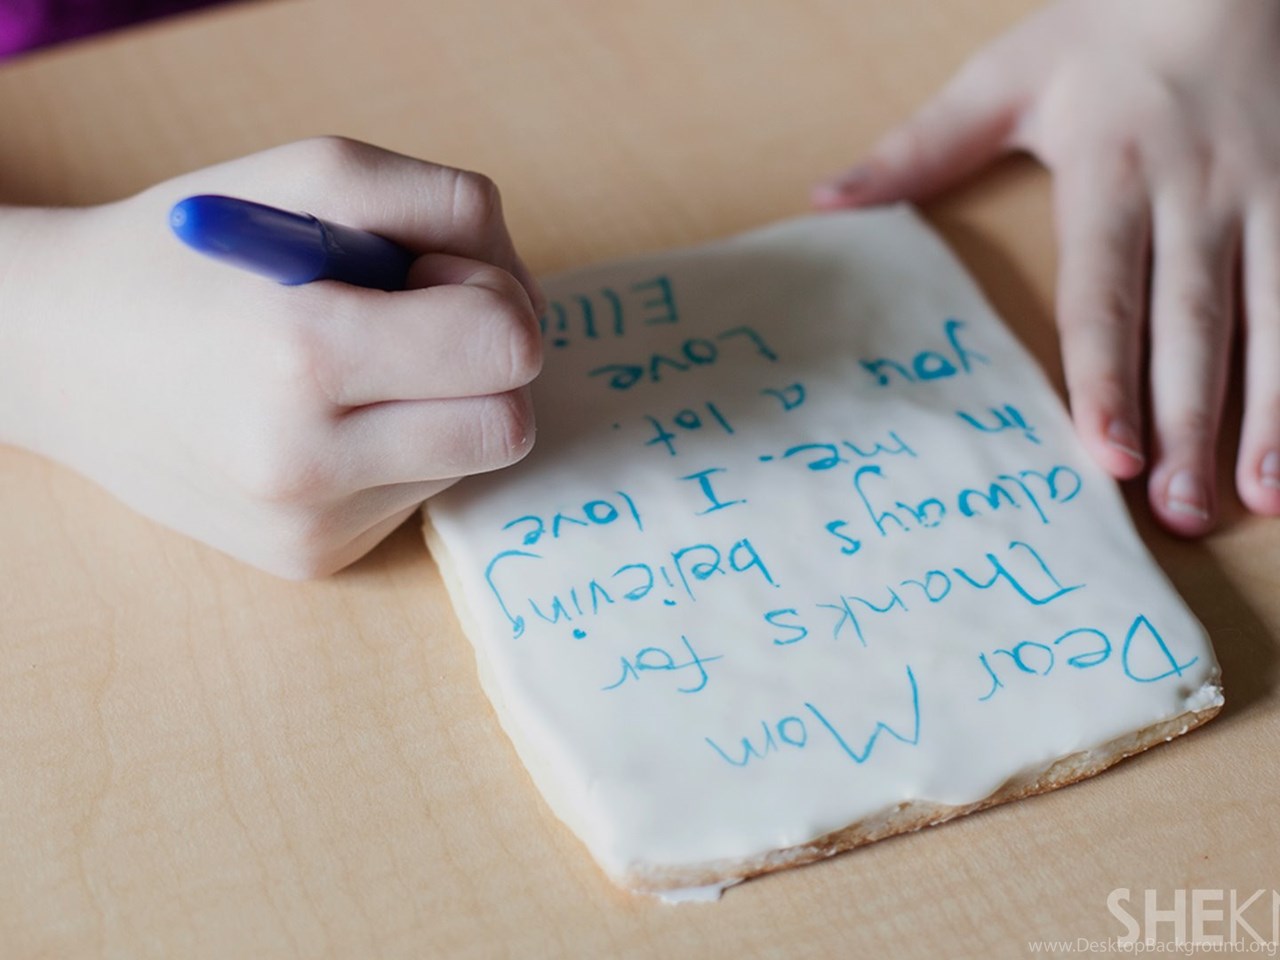 Dear Mom
Thanks for
always believing
in me. I love
you a lot.
Love
Ellie
SHEK
www.DesktopBackground.org